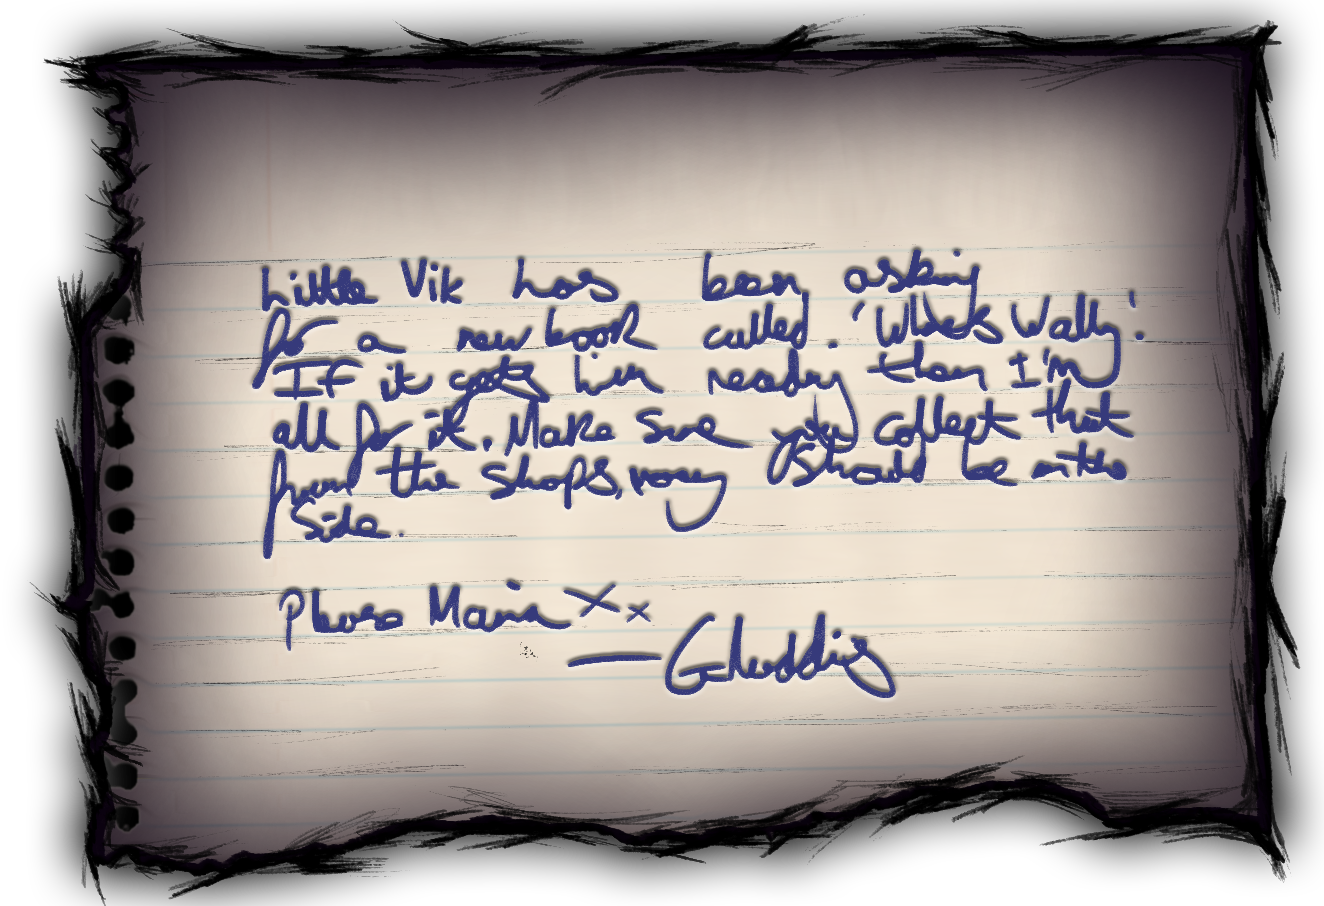 Little Vik has been asking
for a new book called. 'Where's Wally'.
If it gets him reading then I'm
all for it. Make sure you collect that
from the shops, money should be on the
side.
Please Maria xx